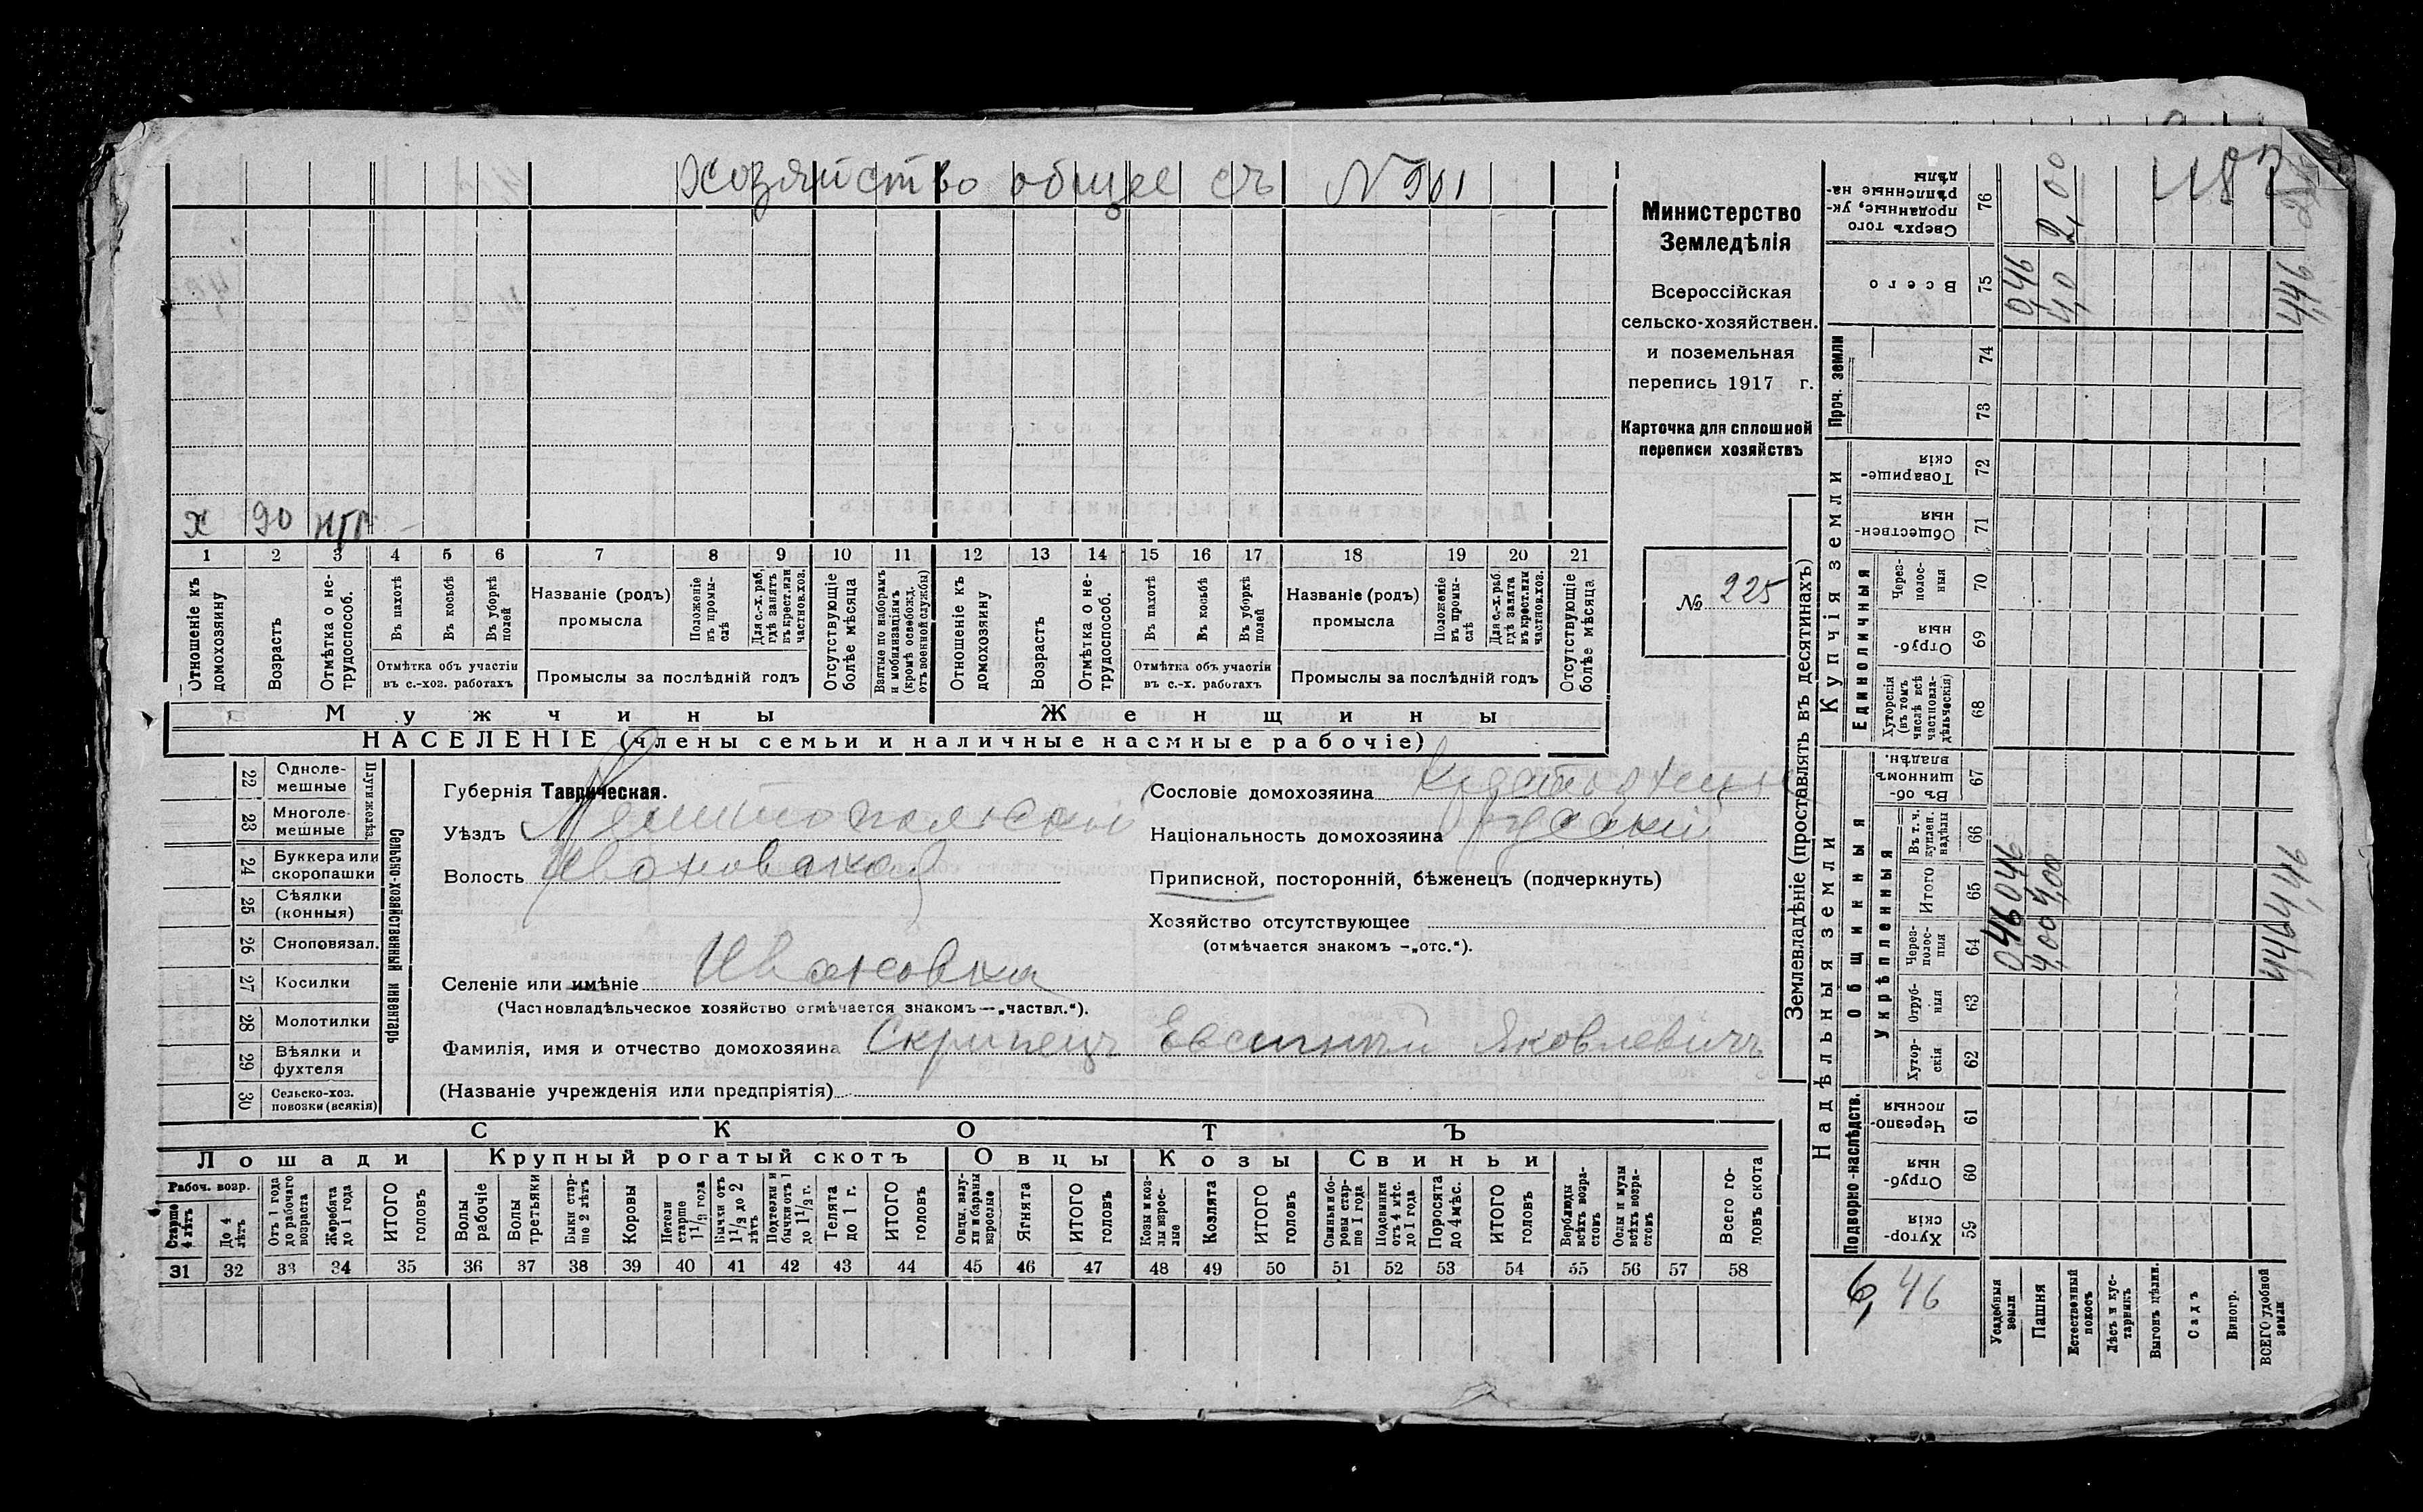 Хозяйство общее съ № 901
х 90 н/р
1 2 3 4 5 6 7 8 9 10 11 12 13 14 15 16 17 18 19 20 21
Отношеніе къ домохозяину
Возрастъ
Отмѣтка о не-трудоспособ.
Въ пахотѣ
Въ косьбѣ
Въ уборкѣ полей
Отмѣтка объ участіи въ с.-хоз. работахъ
Названіе (родъ) промысла
Положеніе въ промы-слѣ
Для с.-х. раб. гдѣ занятъ въ крест. или частнов. хоз.
Промыслы за послѣдній годъ
Отсутствующіе болѣе мѣсяца
Взятые по наборамъ и мобилизаціямъ (кромѣ освобожд. отъ военной службы)
Отношеніе къ домохозяину
Возрастъ
Отмѣтка о не-трудоспособ.
Въ пахотѣ
Въ косьбѣ
Въ уборкѣ полей
Отмѣтка объ участіи въ с.-х. работахъ
Названіе (родъ) промысла
Положеніе въ промы-слѣ
Для с.-х. раб. гдѣ занята въ крест. или частнов. хоз.
Промыслы за послѣдній годъ
Отсутствующіе болѣе мѣсяца
Мужчины
Женщины
НАСЕЛЕНІЕ (члены семьи и наличные наемные рабочіе)
Министерство
Земледѣлія
Всероссійская
сельско-хозяйствен.
и поземельная
перепись 1917 г.
Карточка для сплошной
переписи хозяйствъ
№ 225
Сельско-хозяйственный инвентарь
Плуги желѣз.
22 Одноле-мешные
23 Многоле-мешные
24 Буккера или скоропашки
25 Сѣялки (конныя)
26 Сноповязал.
27 Косилки
28 Молотилки
29 Вѣялки и фухтеля
30 Сельско-хоз. повозки (всякія)
Губернія Таврическая.
Уѣздъ Мелитопольскій
Волость Ивановская
Селеніе или имѣніе Ивановка
(Частновладѣльческое хозяйство отмѣчается знакомъ—„частвл.“).
Фамилія, имя и отчество домохозяина Скрипецъ Евсигній Яковлевичъ
(Названіе учрежденія или предпріятія)
Сословіе домохозяина Крестьянинъ
Національность домохозяина Русскій
Приписной, посторонній, бѣженецъ (подчеркнуть)
Хозяйство отсутствующее
(отмѣчается знакомъ -„отс.“).
СКОТЪ
Лошади
Крупный рогатый скотъ
Овцы
Козы
Свиньи
Рабоч. возр.
Старше 4 лѣтъ
До 4 лѣтъ
Отъ 1 года до рабочаго возраста
Жеребята до 1 года
ИТОГО головъ
Волы рабочіе
Волы третьяки
Быки стар-ше 2 лѣтъ
Коровы
Нетели старше 1½ года
Бычки отъ 1½ до 2 лѣтъ
Подтелки и бычки отъ 1 до 1½ г.
Телята до 1 г.
ИТОГО головъ
Овцы, валу-хи и бараны взрослые
Ягнята
ИТОГО головъ
Козы и коз-лы взрос-лые
Козлята
ИТОГО головъ
Свиньи и бо-ровы стар-ше 1 года
Подсвинки отъ 4 мѣс. до 1 года
Поросята до 4 мѣс.
ИТОГО головъ
Верблюды всѣхъ возра-стовъ
Ослы и мулы всѣхъ возра-стовъ
Всего го-ловъ скота
31 32 33 34 35 36 37 38 39 40 41 42 43 44 45 46 47 48 49 50 51 52 53 54 55 56 57 58
Землевладѣніе (проставлять въ десятинахъ)
Надѣльныя земли
Купчія земли
Проч. земли
Подворно-наслѣдств.
Общинныя
Укрѣпленныя
Единоличныя
Сверхъ того проданные, ук-рѣпленные на-дѣлы 76 2,00
Всего 75 0,46 4,0 4,46
74
73
Товарище-скія 72
Обществен-ныя 71
Через-полос-ныя 70
Отруб-ныя 69
Хуторскія (въ томъ числѣ всѣ частновла-дѣльческія) 68
Въ об-щинномъ владѣн. 67
Въ т. ч. куплен. надѣлы 66
Итого 65 0,46 4,00 4,46
Через-полос-ныя 64 0,46 4,00 4,46
Отруб-ныя 63
Хутор-скія 62
Черезпо-лосныя 61
Отруб-ныя 60
Хутор-скія 59
6,46
Усадебныя земли
Пашня
Естественный покосъ
Лѣсъ и кус-тарникъ
Выгонъ цѣлин.
Садъ
Виногр.
ВСЕГО удобной земли